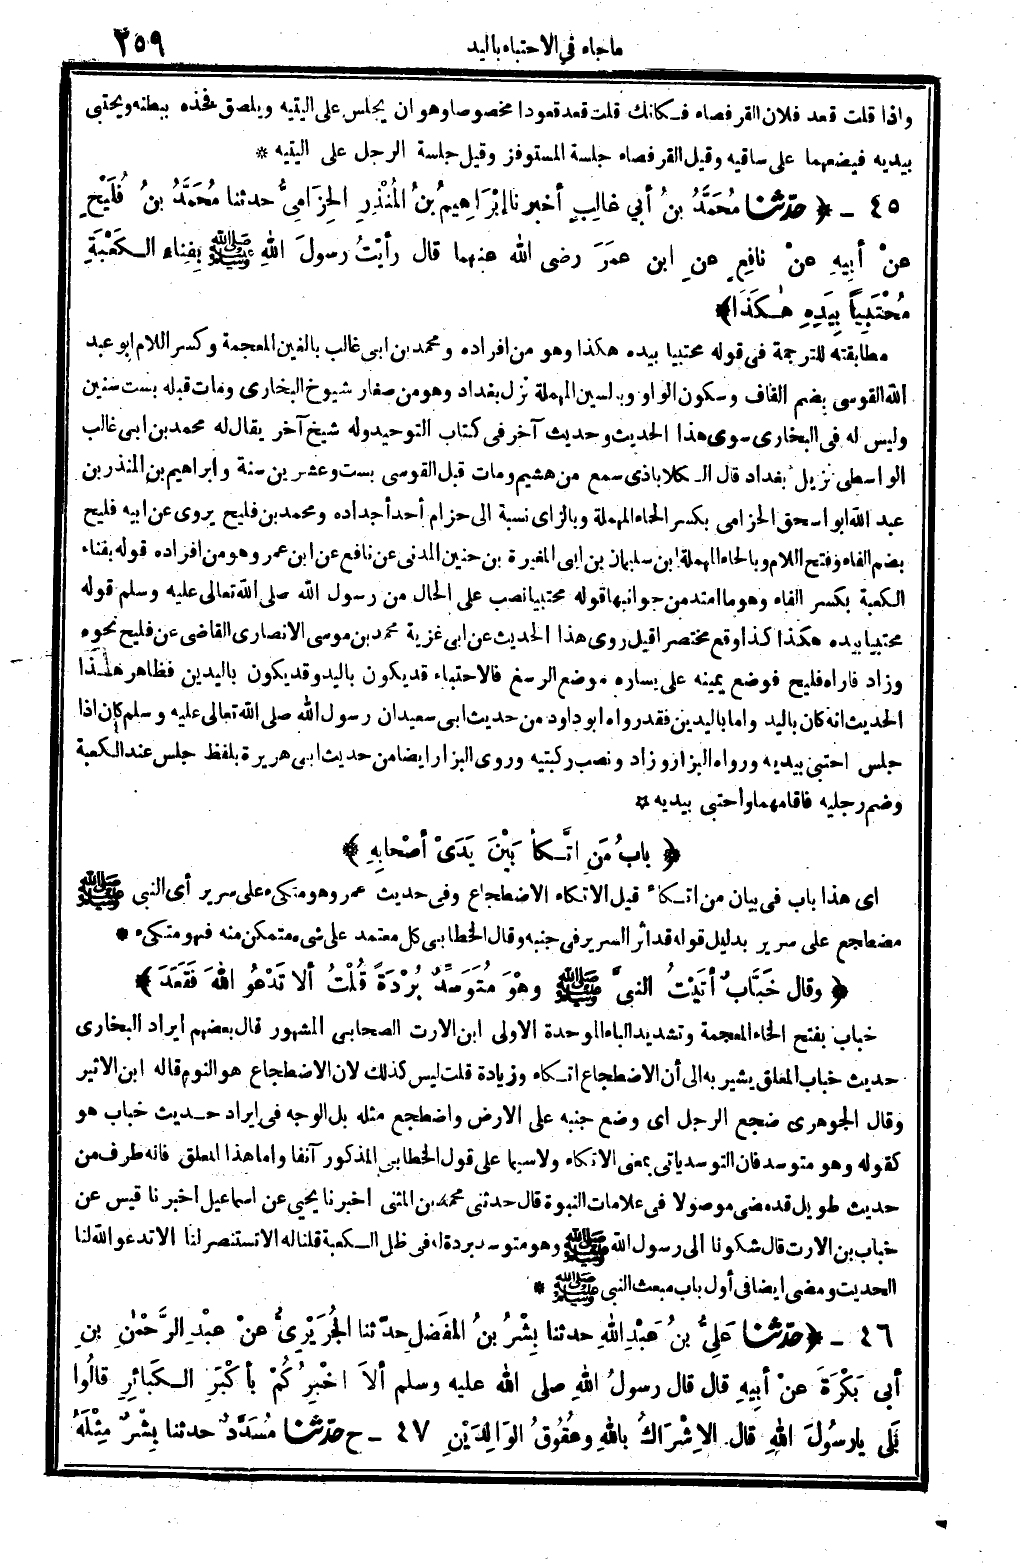 ماجاء في الاحتباء باليد ٢٥٩
واذا قلت قعد فلان القرفصاء فـكانك قلت قعد قعودا مخصوصا وهو ان يجلس على اليتيه ويلصق فخذه ببطنه ويحتبى
بيديه فيضعهما على ساقيه وقيل القرفصاء جلسة المستوفز وقيل جلسة الرجل على اليتيه *
٤٥ ـ ﴿ حدّثنا مُحَمَّدُ بنُ أبي غالِبٍ أخبرنا إبْرَاهِيمُ بنُ المُنْذِرِ الحِزَامِيُّ حدثنا مُحَمَّدُ بنُ فُلَيْحٍ
عنْ أبِيهِ عنْ نافِعٍ عنِ ابنِ عمَرَ رضى الله عنهما قال رأيْتُ رسولَ اللهِ ﷺ بِفِناءِ الـكَعْبَةِ
مُحْتَبِياً بِيَدِهِ هٰـكَذَا ﴾
مطابقته للترجمة فى قوله محتبيا بيده هكذا وهو من افراده ومحمد بن ابى غالب بالغين المعجمة وكسر اللام ابو عبد
الله القوسى بضم القاف وسكون الواو وبالسين المهملة نزل بغداد وهو من صغار شيوخ البخارى ومات قبله بست سنين
وليس له فى البخارى سوى هذا الحديث وحديث آخر فى كتاب التوحيد وله شيخ آخر يقال له محمد بن ابى غالب
الواسطى نزيل بغداد قال الـكلاباذى سمع من هشيم ومات قبل القوسى بست وعشرين سنة وابراهيم بن المنذر بن
عبد الله ابو اسحق الحزامى بكسر الحاء المهملة وبالزاى نسبة الى حزام أحد أجداده ومحمد بن فليح يروى عن ابيه فليح
بضم الفاء وفتح اللام وبالحاء المهملة ابن سليمان بن ابى المغيرة بن حنين المدنى عن نافع عن ابن عمر وهو من افراده قوله بفناء
الكعبة بكسر الفاء وهو ما امتد من جوانبها قوله محتبيا نصب على الحال من رسول الله صلى الله تعالى عليه وسلم قوله
محتبيا بيده هكذا كذا وقع مختصرا قيل روى هذا الحديث عن ابى غزية محمد بن موسى الانصارى القاضى عن فليح نحوه
وزاد فاراه فليح فوضع يمينه على يساره موضع الرسغ فالاحتباء قد يكون باليد وقد يكون باليدين فظاهر هٰـذا
الحديث انه كان باليد واما باليدين فقد رواه ابو داود من حديث ابى سعيد ان رسول الله صلى الله تعالى عليه وسلم كان اذا
جلس احتبى بيديه ورواه البزار وزاد ونصب ركبتيه وروى البزار ايضا من حديث ابى هريرة بلفظ جلس عند الكعبة
وضم رجليه فاقامهما واحتبى بيديه *
﴿ بابُ مَنِ اتَّـكأ بَيْنَ يَدَىْ أصْحابِهِ ﴾
اى هذا باب فى بيان من اتـكأ قيل الاتكاء الاضطجاع وفى حديث عمر وهو متكىء على سرير أى النبى ﷺ
مضطجع على سرير بدليل قوله قد أثر السرير فى جنبه وقال الخطابى كل معتمد على شىء متمكن منه فهو متكىء *
﴿ وقال خَبَّابٌ أتَيْتُ النبىَّ ﷺ وهْوَ مُتَوَسِّدٌ بُرْدَةً قُلْتُ ألا تَدْعُو اللهَ فَقَعَدَ ﴾
خباب بفتح الخاء المعجمة وتشديد الباء الموحدة الاولى ابن الارت الصحابى المشهور قال بعضهم ايراد البخارى
حديث خباب المعلق يشير به الى أن الاضطجاع اتـكاء وزيادة قلت ليس كذلك لان الاضطجاع هو النوم قاله ابن الاثير
وقال الجوهرى ضجع الرجل اى وضع جنبه على الارض واضطجع مثله بل الوجه فى ايراد حـديث خباب هو
كقوله وهو متوسد فان التوسد ياتى بمعنى الاتكاء ولاسيما على قول الخطابى المذكور آنفا واما هذا المعلق فانه طرف من
حديث طويل قد مضى موصولا فى علامات النبوة قال حدثنى محمد بن المثنى اخبرنا يحيى عن اسماعيل اخبرنا قيس عن
خباب بن الارت قال شكونا الى رسول الله ﷺ وهو متوسد بردة له فى ظل الـكعبة قلنا له الا تستنصر لنا الا تدعو الله لنا
الحديث ومضى ايضا فى أول باب مبعث النبى ﷺ *
٤٦ ـ ﴿ حدّثنا عَلِيُّ بنُ عَبْدِ اللهِ حدثنا بِشْرُ بنُ المُفَضَّلِ حدّثنا الجُرَيْرِىُّ عنْ عبْدِ الرَّحْمٰنِ بنِ
أبى بَكْرَةَ عنْ أبِيهِ قال قال رسولُ اللهِ صلى الله عليه وسلم ألاَ اخْبِرُكُمْ بأكْبَرِ الـكَبائِرِ قالُوا
بَلَى يا رسُولَ اللهِ قال الإشْرَاكُ باللهِ وعُقُوقُ الوَالِدَيْنِ ٤٧ ـ ح حدّثنا مُسَدَّدٌ حدثنا بِشْرٌ مِثْلَهُ